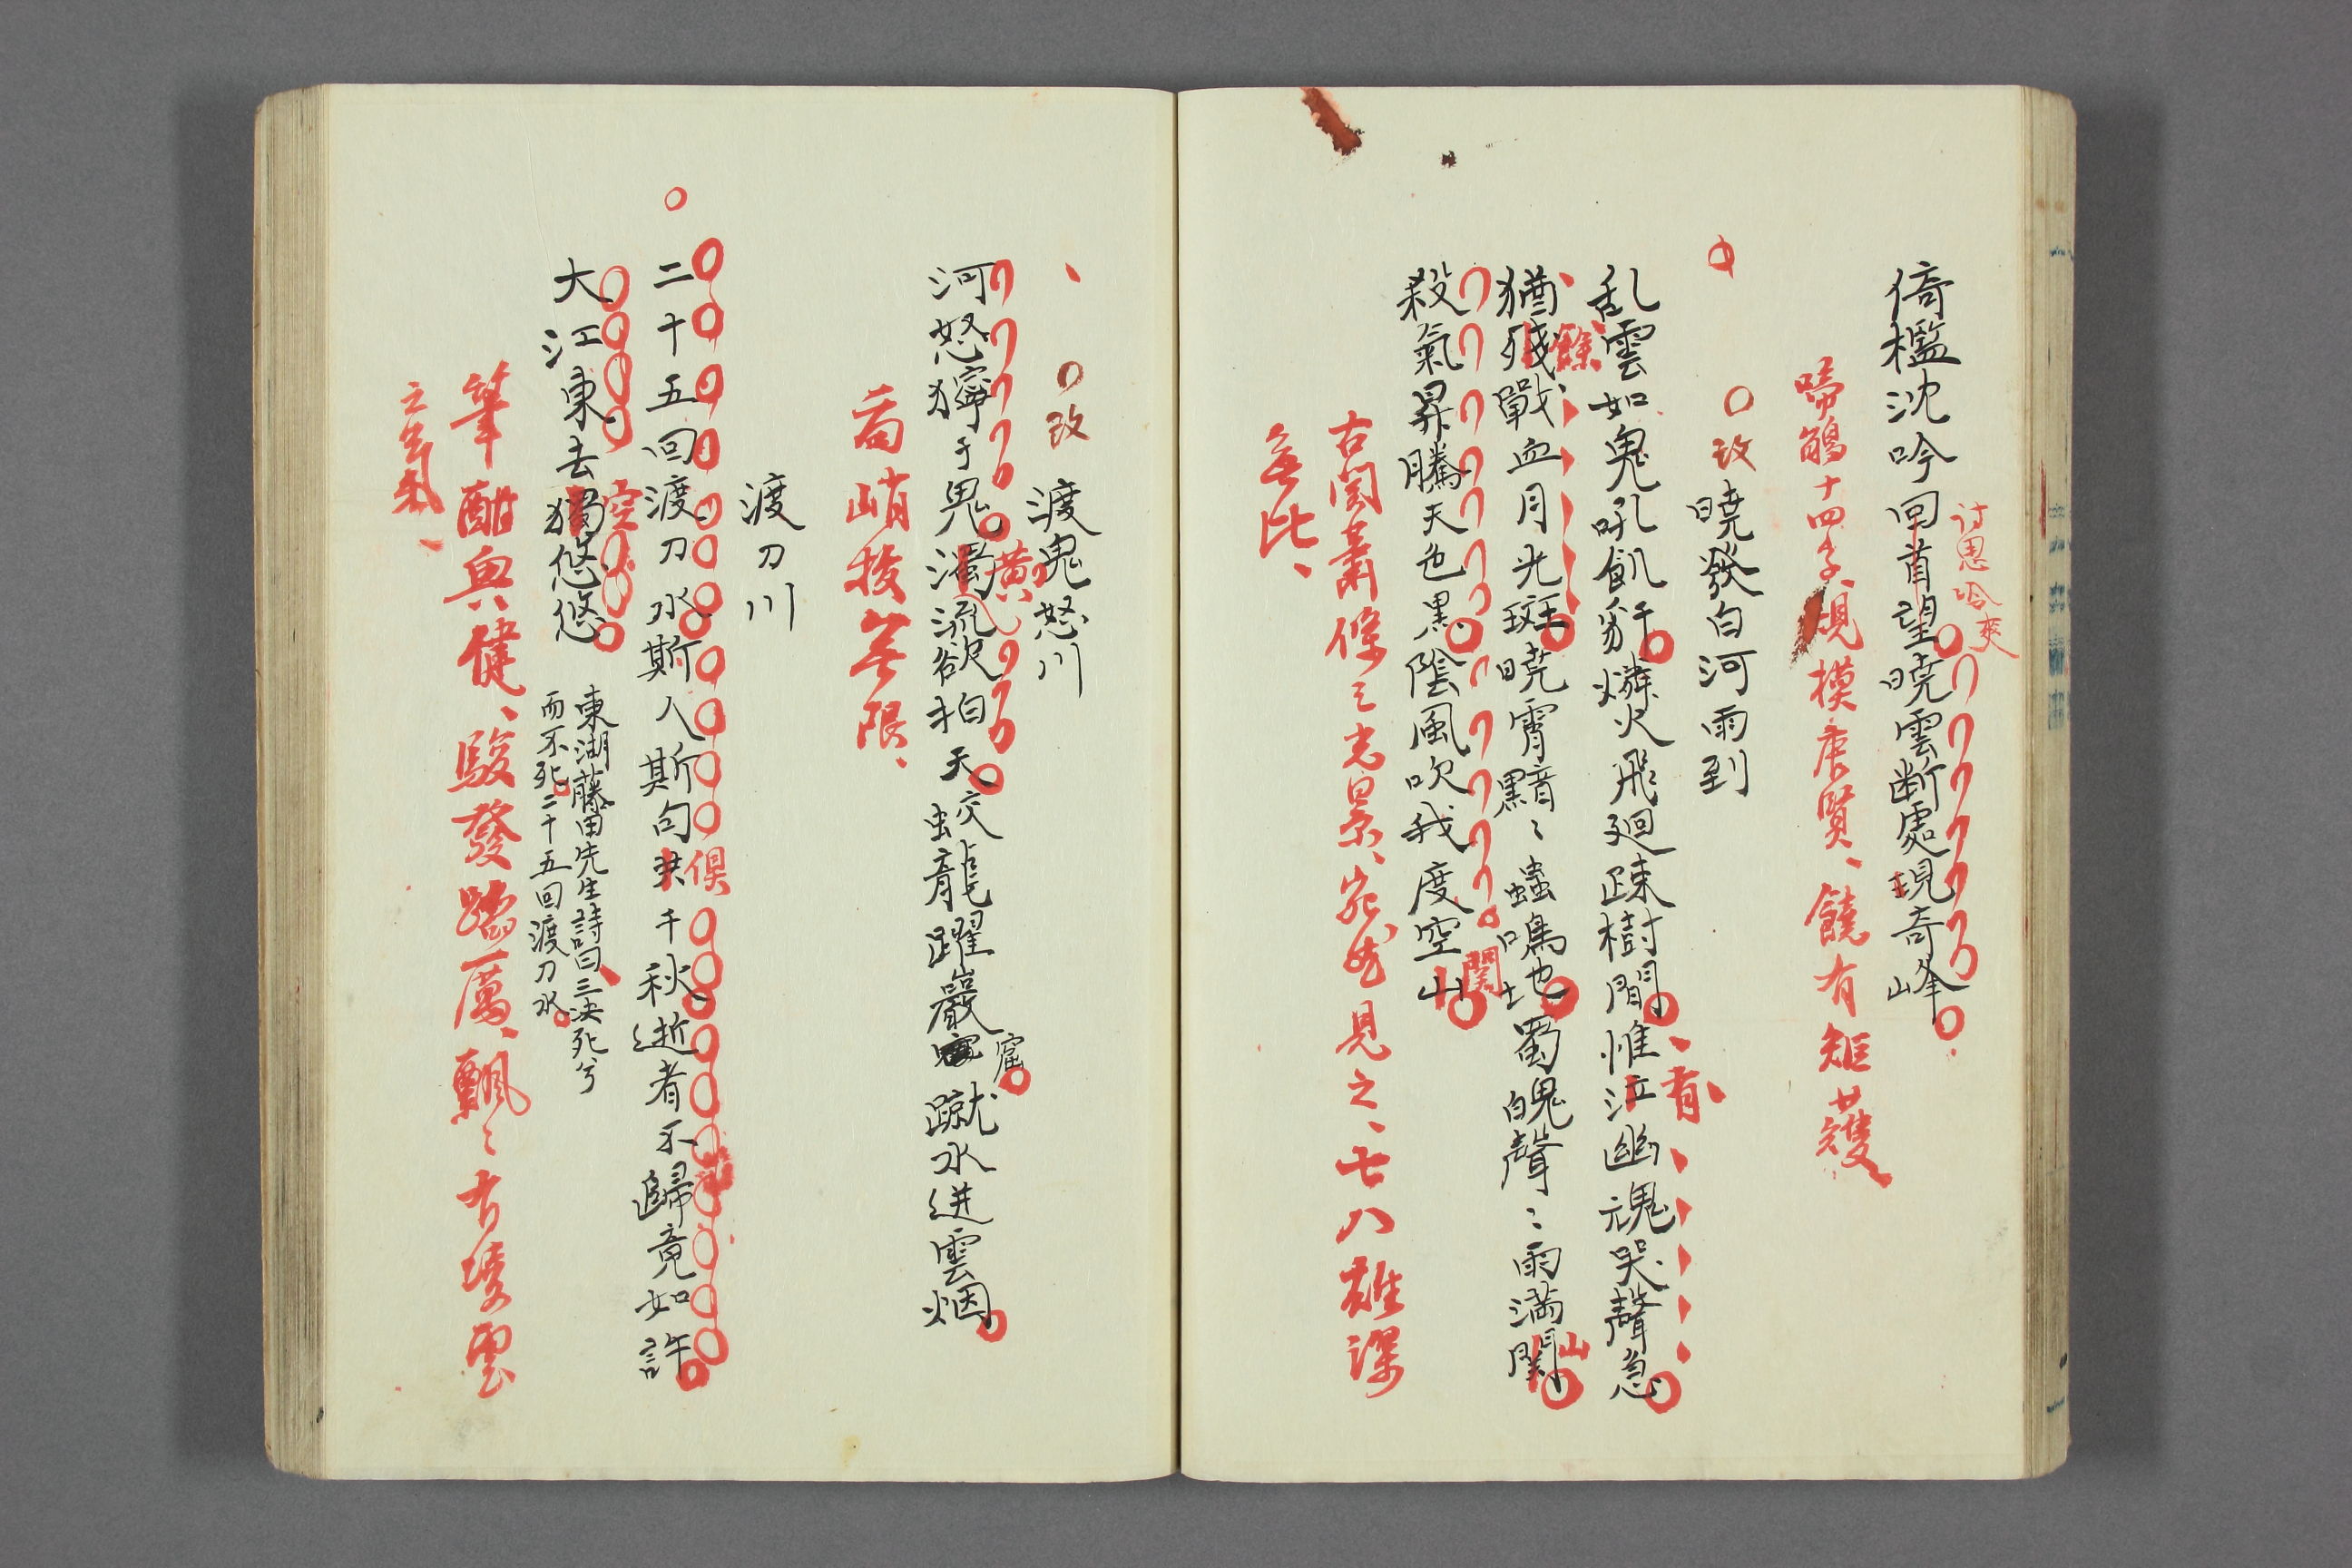 倚檻沈吟回首望曉雲断處現奇峰
詩思冷爽
啼鵑十四字、規模唐賢、饒有矩矱、
改
曉發白河雨到
乱雲如鬼吼飢犴豺燐火飛廻疎樹間惟泣幽魂哭聲急
有
猶残戰血月光斑曉霄黯〻蟲鳴地蜀魄聲〻雨満関
餘
山
殺氣昇騰天色黒陰風吹我度空山
関
古関蕭條之光景、宛然見之、七八雄深
無比、
改
渡鬼怒川
河怒獰于鬼濁流欲拍天蛟龍躍巖窟蹴水迸雲烟
黄
奇峭抜無限、
渡刀川
二十五回渡刀水斯人斯句共千秋逝者不歸竟如許
倶
大江東去獨悠悠
空
東湖藤田先生詩曰三决死兮
而不死二十五回渡刀水
筆酣興健、駿發踔厲、飄〻有凌雲
之氣、